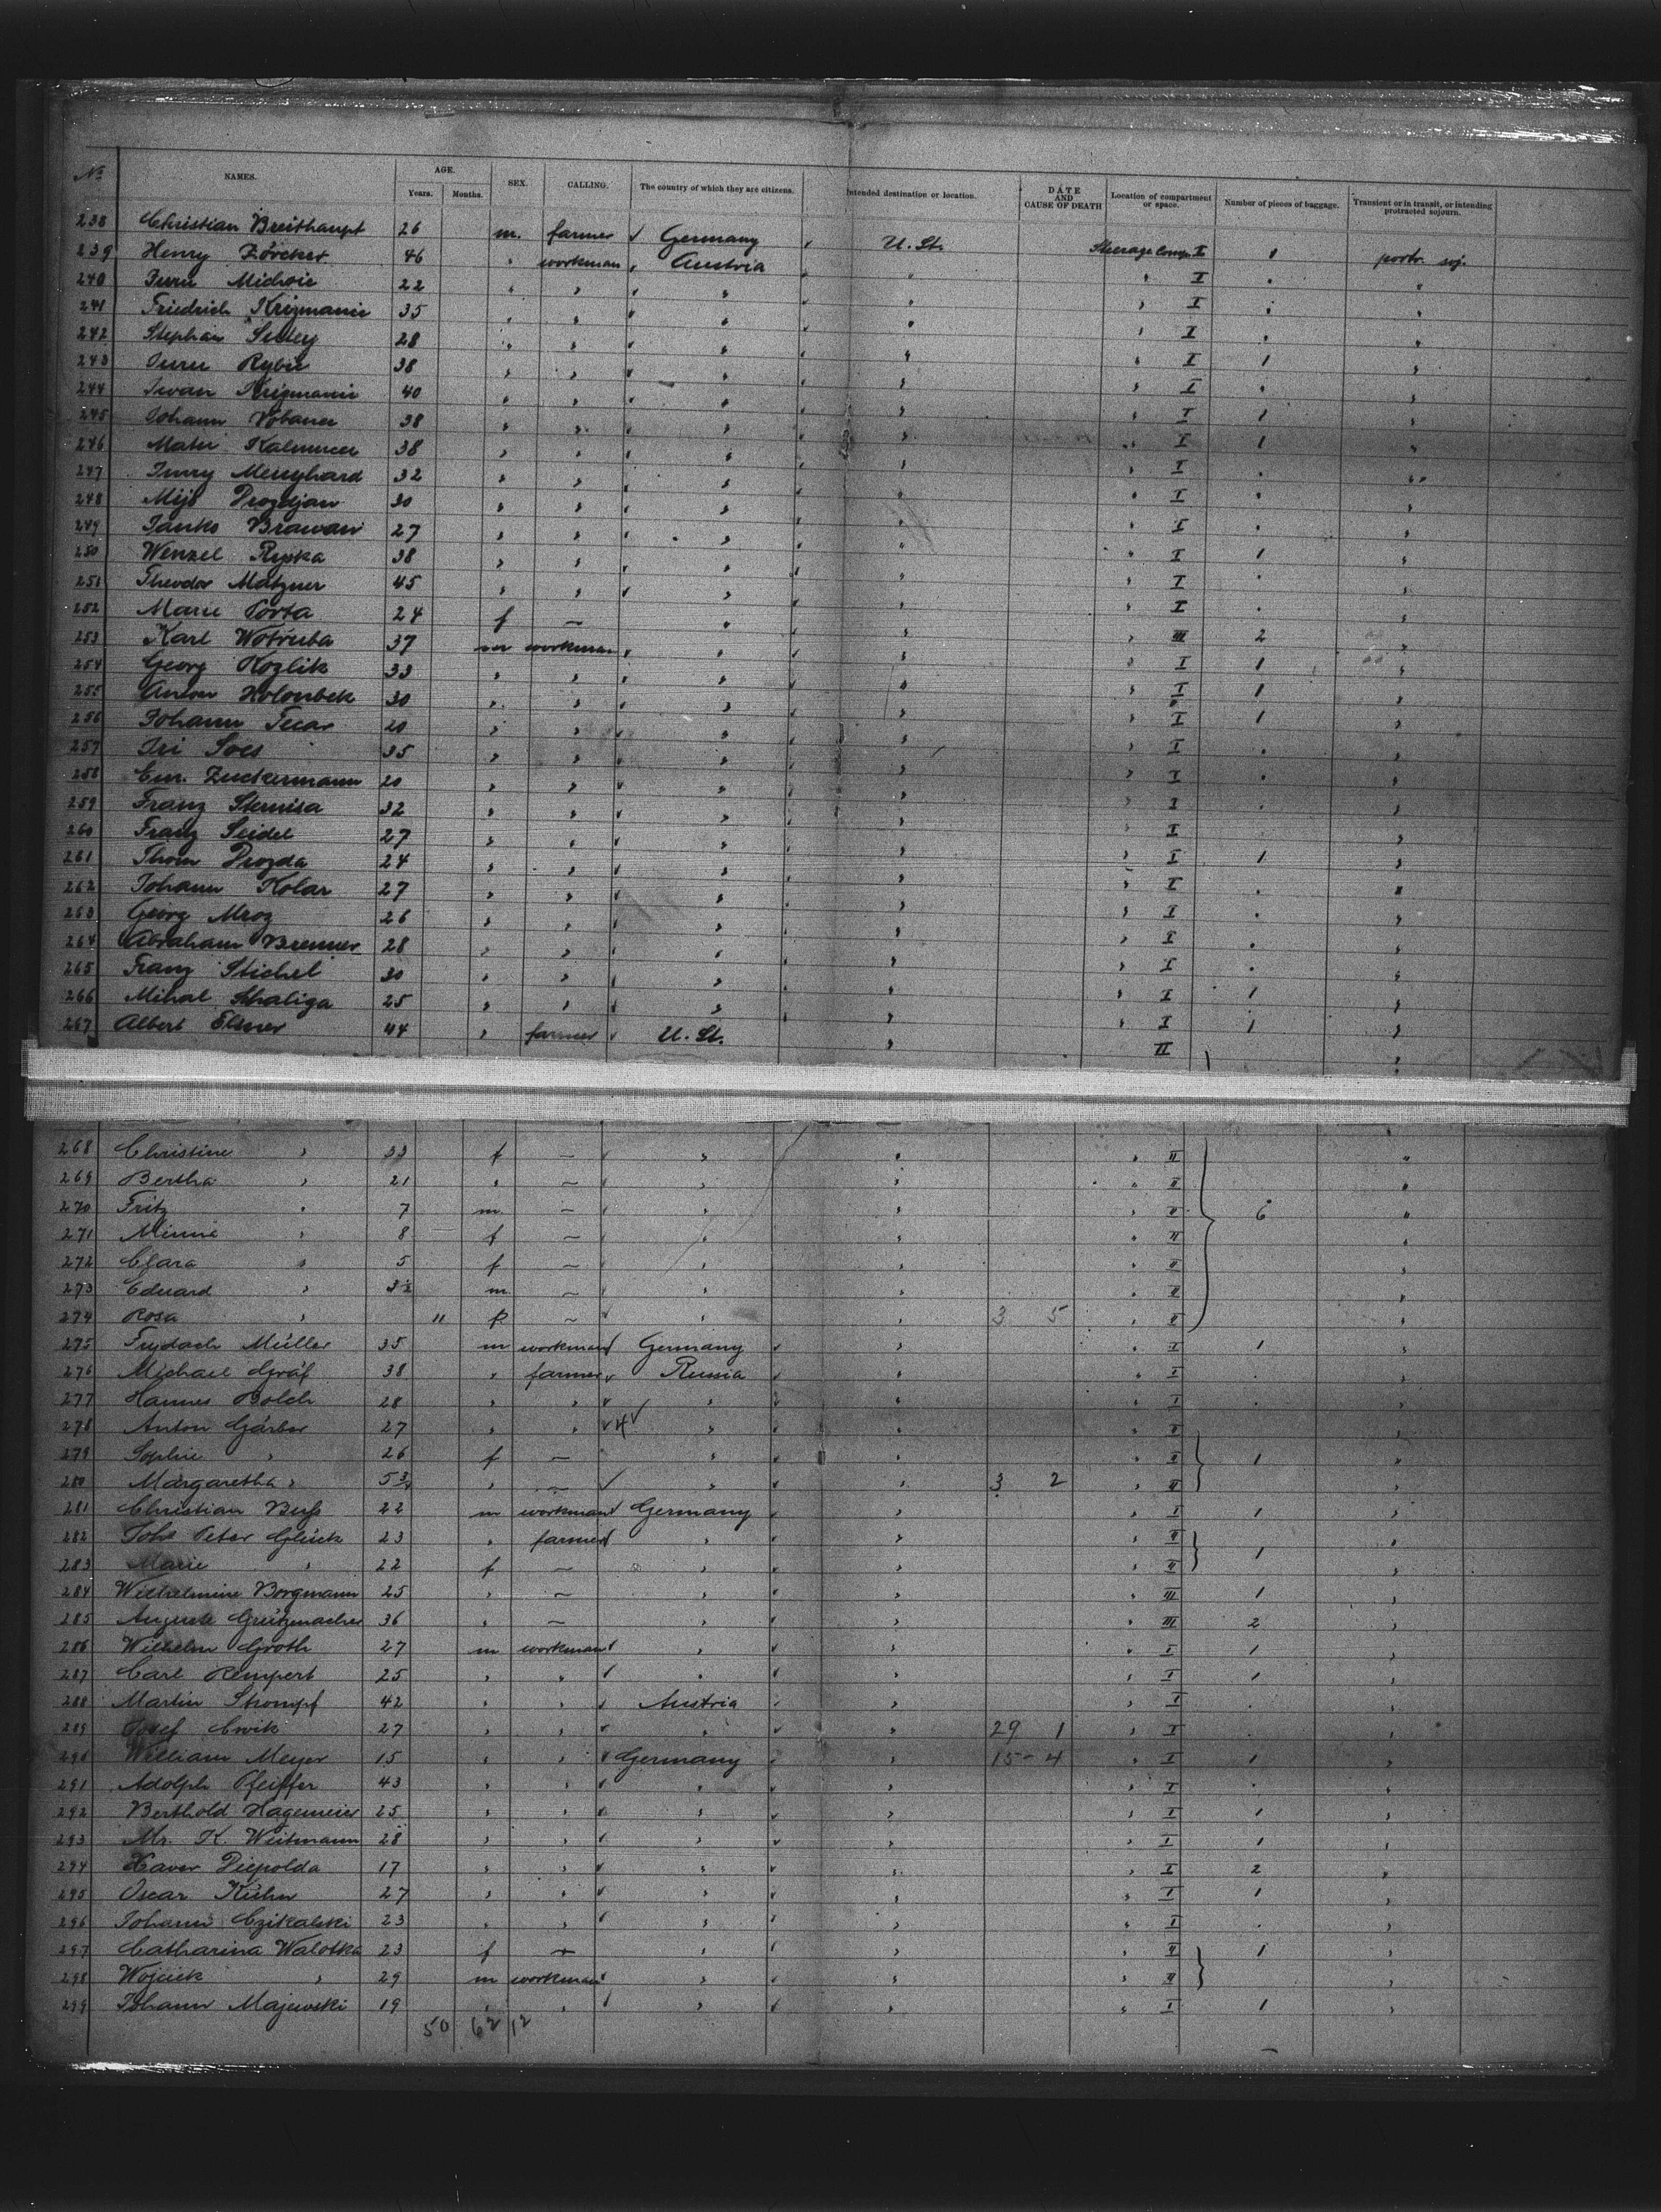 No NAMES. AGE. Years. Months. SEX. CALLING. The country of which they are citizens. Intended destination or location. DATE AND CAUSE OF DEATH Location of compartment or space. Number of pieces of baggage. Transient or in transit, or intending protracted sojourn.
238 Christian Breithaupt 26 m. farmer Germany U. St. Steerage Comp. I 1 protr. soj.
239 Henry 46 " workman Austria " " I " "
240 Juru Michoic 22 " " " " " I " "
241 Friedrich Krizmanic 35 " " " " " I " "
242 Stephan 28 " " " " " I 1 "
243 Juru Rybic 38 " " " " " I " "
244 Iwan Krizmanic 40 " " " " " I 1 "
245 Johann 38 " " " " " I 1 "
246 Mate 38 " " " " " I " "
247 32 " " " " " I " "
248 Mijo Drozdjan 30 " " " " " I " "
249 Janko Brawan 27 " " " " " I 1 "
250 Wenzel Rypka 38 " " " " " I " "
251 Theodor Matzner 45 " " " " " I " "
252 Marie Porta 24 f — " " " III 2 "
253 Karl Wotruba 37 m workman " " " I 1 "
254 Georg Kozlik 33 " " " " " I 1 "
255 Anton Holoubek 30 " " " " " I 1 "
256 Johann Tecar 20 " " " " " I " "
257 Iri Soes 35 " " " " " I " "
258 Em. Zuckermann 20 " " " " " I " "
259 Franz Stemisa 32 " " " " " I " "
260 Franz Seidel 27 " " " " " I 1 "
261 Thom Drozda 24 " " " " " I " "
262 Johann Kolar 27 " " " " " I " "
263 Georg Mroz 26 " " " " " I " "
264 Abraham Brenner 28 " " " " " I " "
265 Franz Stichel 30 " " " " " I 1 "
266 Mihal Shaliga 25 " " " " " I 1 "
267 Albert Elsner 44 " farmer U. St. " II "
268 Christine " 33 f — " " " II "
269 Bertha " 21 " — " " " II "
270 Fritz " 7 m. — " " " II 6 "
271 Minnie " 8 f — " " " II "
272 Clara " 5 f — " " " II "
273 Eduard " 3½ m — " " " II "
274 Rosa " 11 f — " " 3 5 " II "
275 Müller 35 m workman Germany " " I 1 "
276 Michael Gräf 38 " farmer Russia " " I " "
277 Hannes Bolch 28 " " " " " I " "
278 Anton Gärber 27 " " 4 " " " II "
279 Sophie " 26 f — " " " II 1 "
280 Margaretha " 5¾ " — " " 3 2 " II "
281 Christian Berß 22 m workman Germany " " I 1 "
282 Joh. Peter Glück 23 " farmer " " " II "
283 Marie " 22 f — " " " II 1 "
284 Wilhelmine Borgmann 25 " — " " " III 1 "
285 Auguste Grützmacher 36 " — " " " III 2 "
286 Wilhelm Groth 27 m workman " " " I 1 "
287 Carl Rempert 25 " " " " " I 1 "
288 Martin Strompf 42 " " Austria " " I " "
289 Josef Cwik 27 " " " " 29 1 " I " "
290 William Meyer 15 " " Germany " 15 - 4 " I 1 "
291 Adolph Pfeiffer 43 " " " " " I " "
292 Berthold Hagemeier 25 " " " " " I 1 "
293 Mr. K. Weitmann 28 " " " " " I 1 "
294 Xaver Diepolda 17 " " " " " I 2 "
295 Oscar Kühn 27 " " " " " I 1 "
296 Johann Czikalski 23 " " " " " I " "
297 Catharina Walotka 23 f — " " " II 1 "
298 Wojciek " 29 m workman " " " II "
299 Johann Majewski 19 " " " " " I 1 "
50 62 12